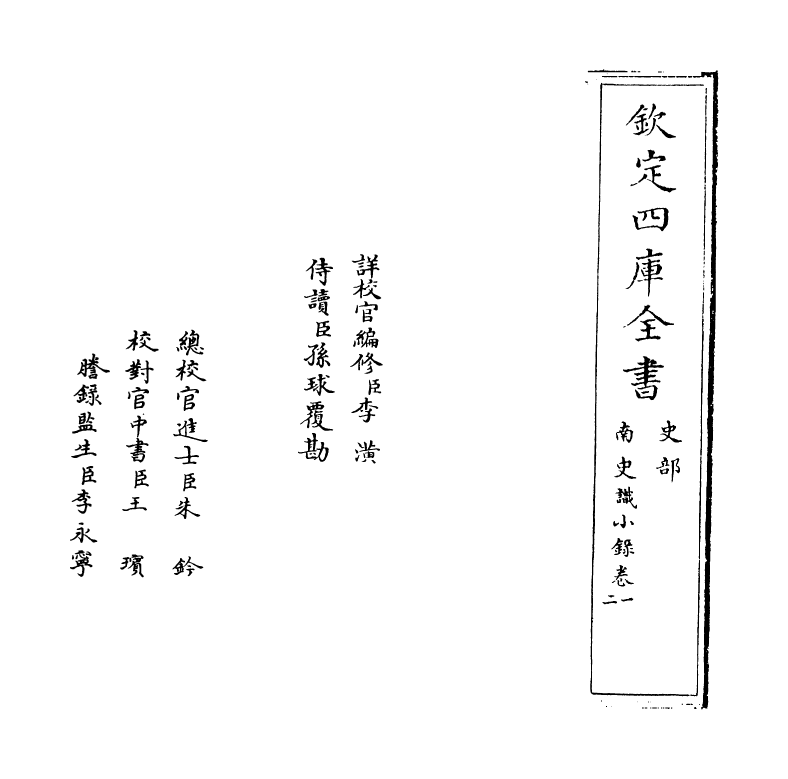 欽定四庫全書
史部
南史識小錄卷一
二
詳校官編修臣李潢
侍讀臣孫球覆勘
總校官進士臣朱鈐
校對官中書臣王璸
謄錄監生臣李永寧